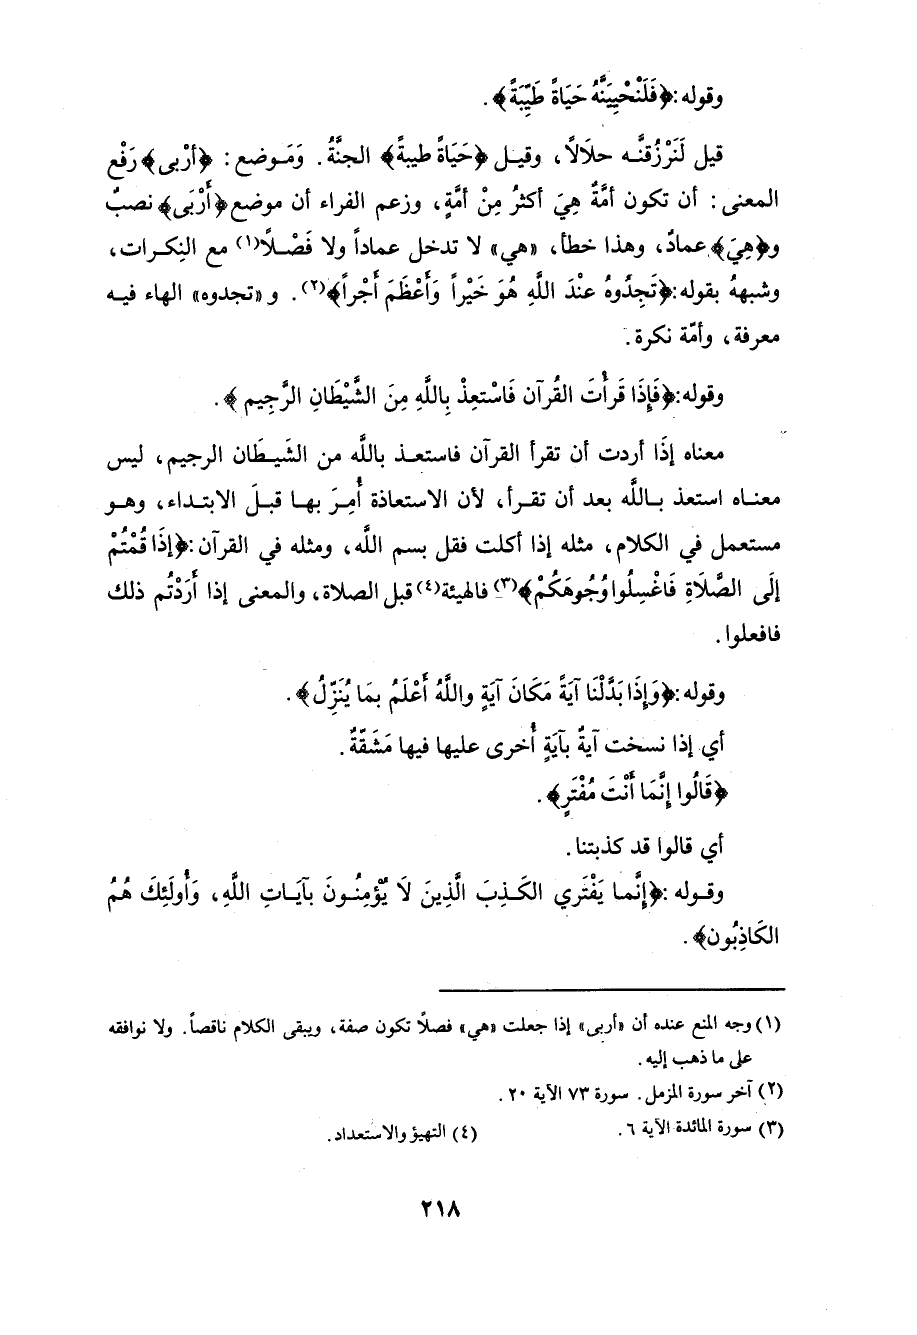 وقوله:﴿فَلَنُحْيِيَنَّهُ حَيَاةً طَيِّبَةً﴾.
قيل لَنَرْزُقنَّـه حلَالاً، وقيـل ﴿حَيَاةً طيبةً﴾ الجنَّةُ. وَمَـوضع: ﴿أرْبى﴾ رَفْع
المعنى: أن تكون أمَّةٌ هِيَ أكثرُ مِنْ أمَّةٍ، وزعم الفراء أن موضع ﴿أَرْبَى﴾ نصبٌ
و﴿هِيَ﴾ عمادٌ، وهذا خطأ، «هي» لا تدخل عماداً ولا فَصْـلاً(١) مع النِكـرات،
وشبههُ بقوله:﴿تَجِدُوهُ عنْدَ اللَّهِ هُوَ خَيْراً وَأَعْظَمَ أَجْراً﴾(٢). و «تجدوه» الهاء فيـه
معرفة، وأمّة نكرة.
وقوله:﴿فَإِذَا قَرأْتَ القُرآن فَاسْتَعِذْ بِاللَّهِ مِنَ الشَّيْطَانِ الرَّجِيم﴾.
معناه إذَا أردت أن تقرأ القرآن فاستعـذ باللَّه من الشَيـطَان الرجيم، ليس
معنـاه استعذ بـاللَّه بعد أن تقـرأ، لأن الاستعاذة أُمِـرَ بهـا قبـلَ الابتـداء، وهـو
مستعمل في الكلام، مثله إذا أكلت فقل بسم اللَّه، ومثله في القرآن:﴿إِذَا قُمْتُمْ
إلَى الصَّلَاةِ فَاغْسِلُوا وُجُوهَكُمْ﴾(٣) فالهيئة(٤) قبل الصلاة، والمعنى إذا أَرَدْتُم ذلك
فافعلوا.
وقوله:﴿وَإِذَا بَدَّلْنَا آيَةً مَكَانَ آيَةٍ واللَّهُ أَعْلَمُ بِمَا يُنَزِّلُ﴾.
أي إذا نسخت آيةٌ بآيَةٍ أُخرى عليها فيها مَشَقّةٌ.
﴿قَالُوا إِنَّمَا أَنْتَ مُفْتَرٍ﴾.
أي قالوا قد كذبتنا.
وقـوله:﴿إِنَّمـا يَفْتَرِي الكَـذِبَ الَّذِينَ لاَ يُؤْمِنُـونَ بآيَـاتِ اللَّهِ، وَأُولَئِكَ هُمُ
الكَاذِبُون﴾.
(١) وجه المنع عنده أن «أربى» إذا جعلت «هي» فصلًا تكون صفة، ويبقى الكلام ناقصاً. ولا نوافقه
على ما ذهب إليه.
(٢) آخر سورة المزمل. سورة ٧٣ الآية ٢٠.
(٣) سورة المائدة الآية ٦. (٤) التهيؤ والاستعداد.
٢١٨